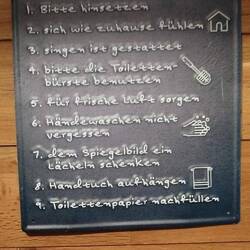 1. Bitte hinsetzen
2. sich wie zuhause fühlen
3. singen ist gestattet
4. bitte die Toiletten-
bürste benutzen
5. für frische Luft sorgen
6. Händewaschen nicht
vergessen
7. dem Spiegelbild ein
Lächeln schenken
8. Handtuch aufhängen
9. Toilettenpapier nachfüllen